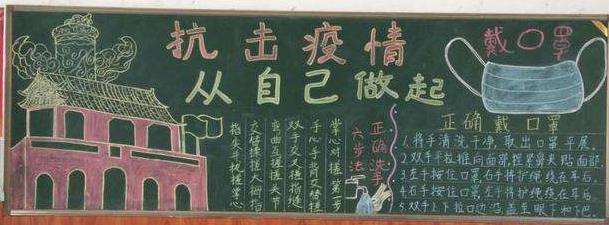 抗击疫情
从自己做起
戴口罩
正确洗手
六步法
掌心对搓第一步
手心手背交替搓
双手交叉搓指缝
弯曲互搓搓关节
交替揉搓大拇指
指尖并拢搓掌心
正确戴口罩
1.将手清洗干净,取出口罩平展。
2.双手平拉推向面部,捏紧鼻夹贴面部
3.左手按住口罩右手将护绳绕在耳后。
4.右手按住口罩左手将护绳绕在耳后。
5.双手上下拉口边沿盖至眼下和下巴。